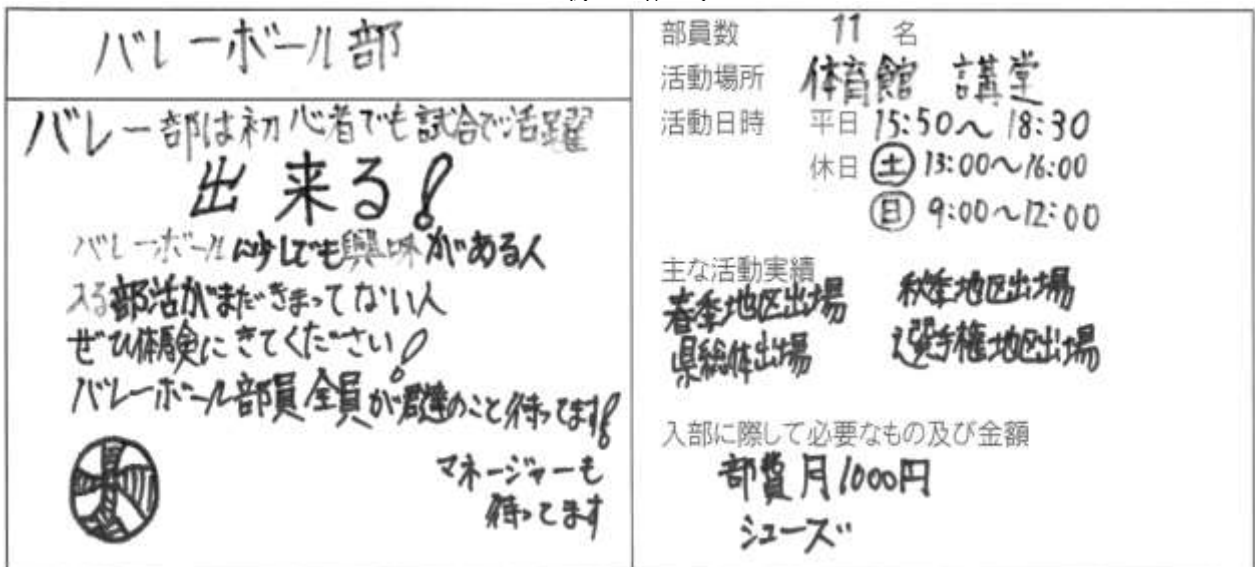 バレーボール部
バレー部は初心者でも試合で活躍
出来る!
バレーボールに少しでも興味がある人
入る部活がまだきまってない人
ぜひ体験にきてください!
バレーボール部員全員が君達のこと待ってます!
マネージャーも
待ってます
部員数 11 名
活動場所 体育館 講堂
活動日時 平日 15:50~18:30
休日 土 13:00~16:00
日 9:00~12:00
主な活動実績
春季地区出場 秋季地区出場
県総体出場 選手権地区出場
入部に際して必要なもの及び金額
部費月1000円
シューズ